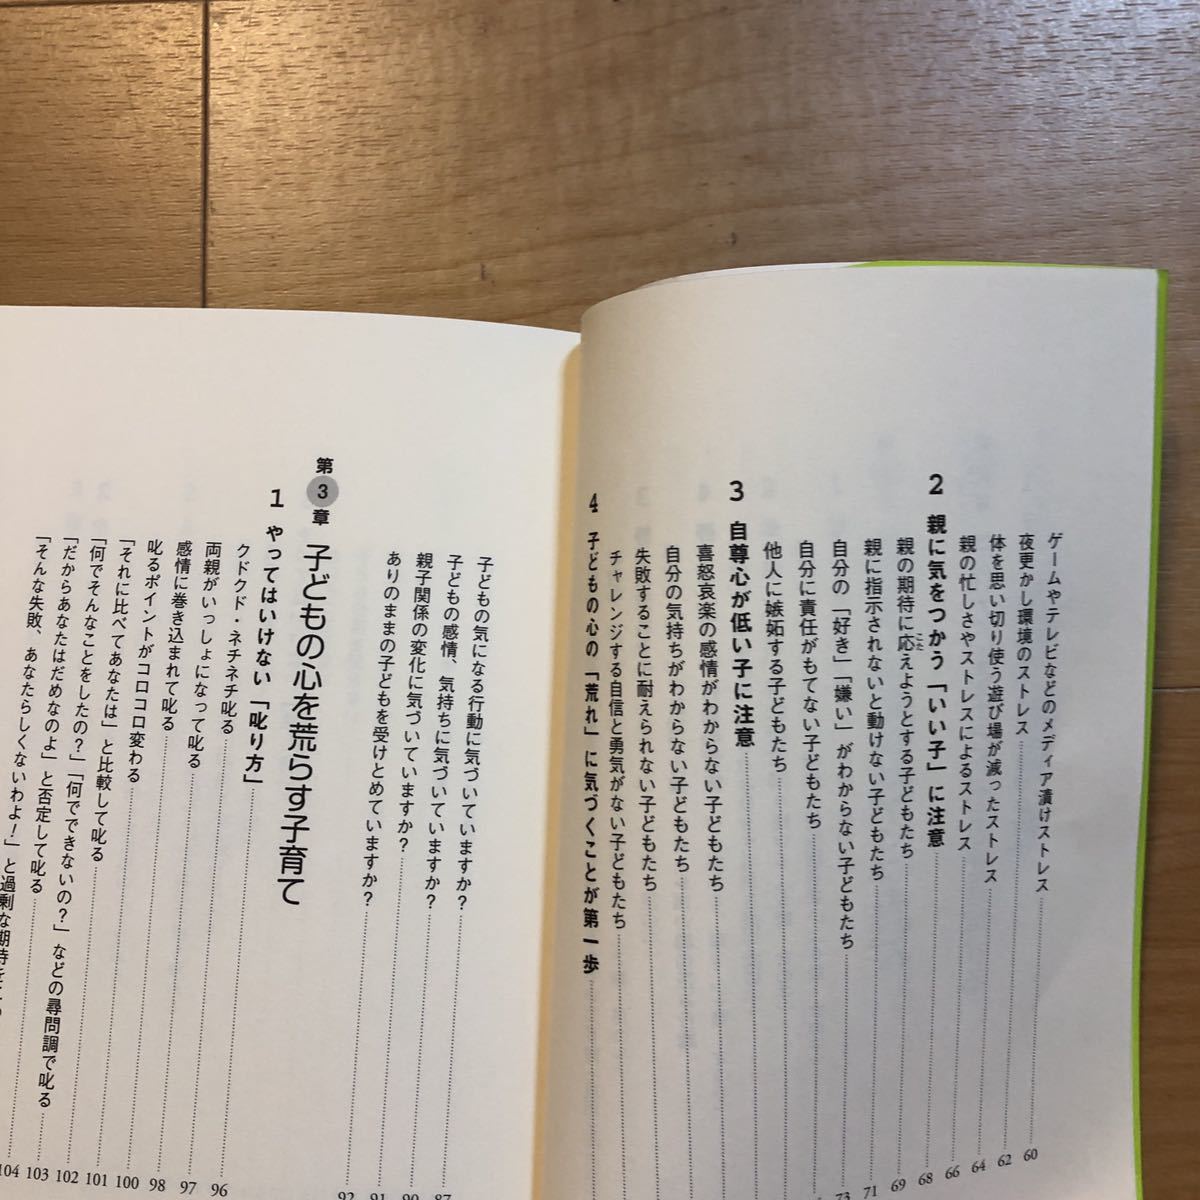 ゲームやテレビなどのメディア漬けストレス 60
夜更かし環境のストレス 62
体を思い切り使う遊び場が減ったストレス 64
親の忙しさやストレスによるストレス 66
2 親に気をつかう「いい子」に注意 68
親の期待に応えようとする子どもたち 69
こた
親に指示されないと動けない子どもたち 71
自分の「好き」「嫌い」がわからない子どもたち 73
自分に責任がもてない子どもたち
他人に嫉妬する子どもたち
3 自尊心が低い子に注意
喜怒哀楽の感情がわからない子どもたち
自分の気持ちがわからない子どもたち
失敗することに耐えられない子どもたち
チャレンジする自信と勇気がない子どもたち
4 子どもの心の「荒れ」に気づくことが第一歩
子どもの気になる行動に気づいていますか? 87
子どもの感情、気持ちに気づいていますか? 90
親子関係の変化に気づいていますか? 91
ありのままの子どもを受けとめていますか? 92
第3章 子どもの心を荒らす子育て
1 やってはいけない「叱り方」 96
クドクド・ネチネチ叱る 97
両親がいっしょになって叱る 98
感情に巻き込まれて叱る 100
叱るポイントがコロコロ変わる 101
「それに比べてあなたは」と比較して叱る 102
「何でそんなことをしたの?」「何でできないの?」などの尋問調で叱る 103
「だからあなたはだめなのよ」と否定して叱る 104
「そんな失敗、あなたらしくないわよ!」と過剰な期待を